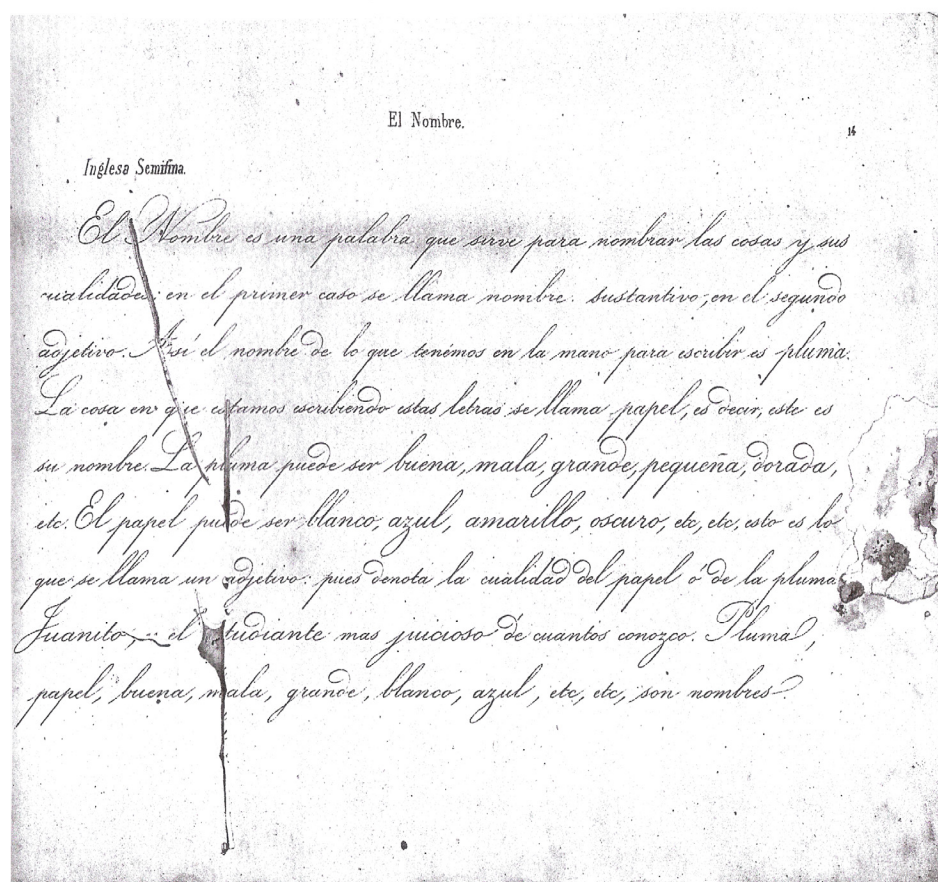 El Nombre.
14
Inglesa Semifina.
El Nombre es una palabra que sirve para nombrar las cosas y sus
cualidades; en el primer caso se llama nombre sustantivo; en el segundo
adjetivo. Así el nombre de lo que tenémos en la mano para escribir es pluma.
La cosa en que estamos escribiendo estas letras se llama papel, es decir, este es
su nombre. La pluma puede ser buena, mala, grande, pequeña, dorada,
etc. El papel puede ser blanco, azul, amarillo, oscuro, etc, etc, esto es lo
que se llama un adjetivo: pues denota la cualidad del papel ó de la pluma
Juanito, el estudiante mas juicioso de cuantos conozco. Pluma,
papel, buena, mala, grande, blanco, azul, etc, etc, son nombres